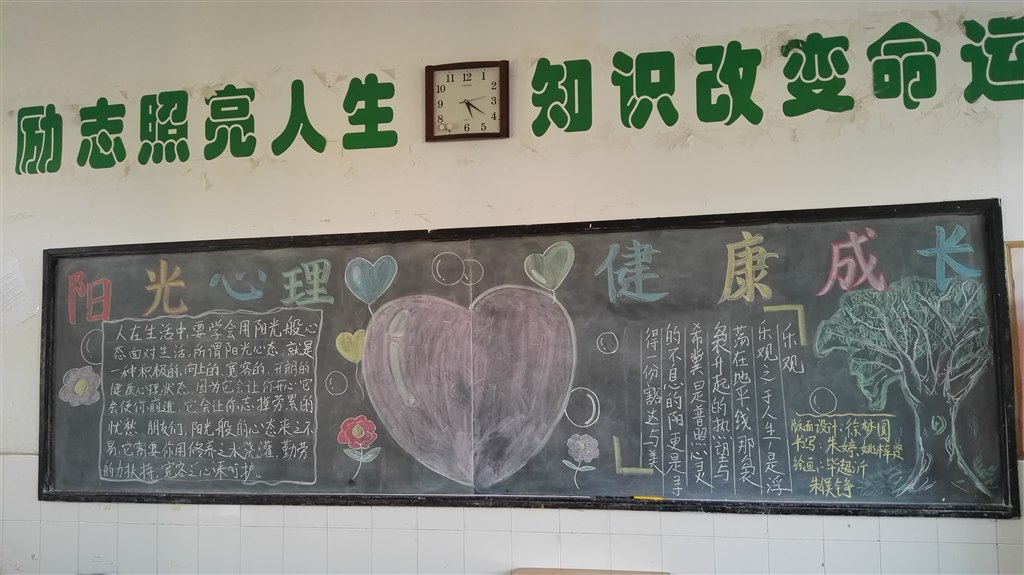 励志照亮人生
知识改变命运
11 12 1
10 2
9 3
8 4
7 6 5
阳光心理
健康成长
人在生活中,要学会用阳光般心
态面对生活,所谓阳光心态,就是
一种积极的,向上的,宽容的,开朗的
健康心理状态.因为它会让你开心,它
会使你前进,它会让你忘掉劳累的
忧愁.朋友们,阳光般的心态来之不
易,它需要你用修养之水浇灌,勤劳
的力扶持,宽容之心来呵护.
乐观
乐观之于人生,是浮
荡在地平线那袅
袅升起的热望与
希冀,是普照心灵
的不息的阳,更是寻
得一份豁达与美
版面设计:徐梦圆
书写:朱婷
绘画:毕超沂